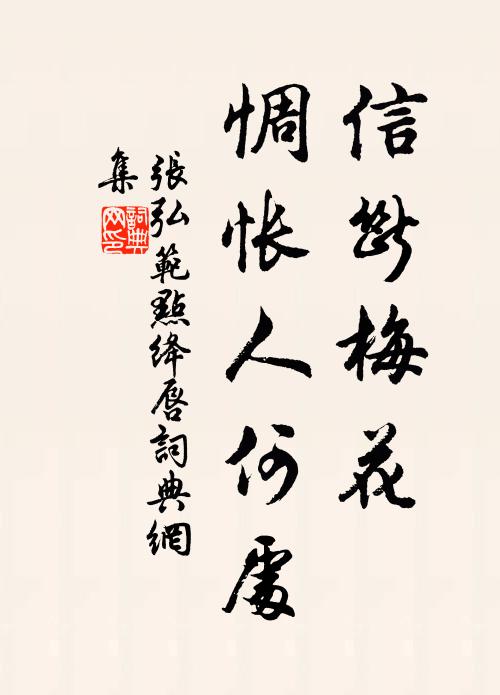 信斷梅花
惆悵人何處
張弘範點絳唇詞典網
集
詞典
网印